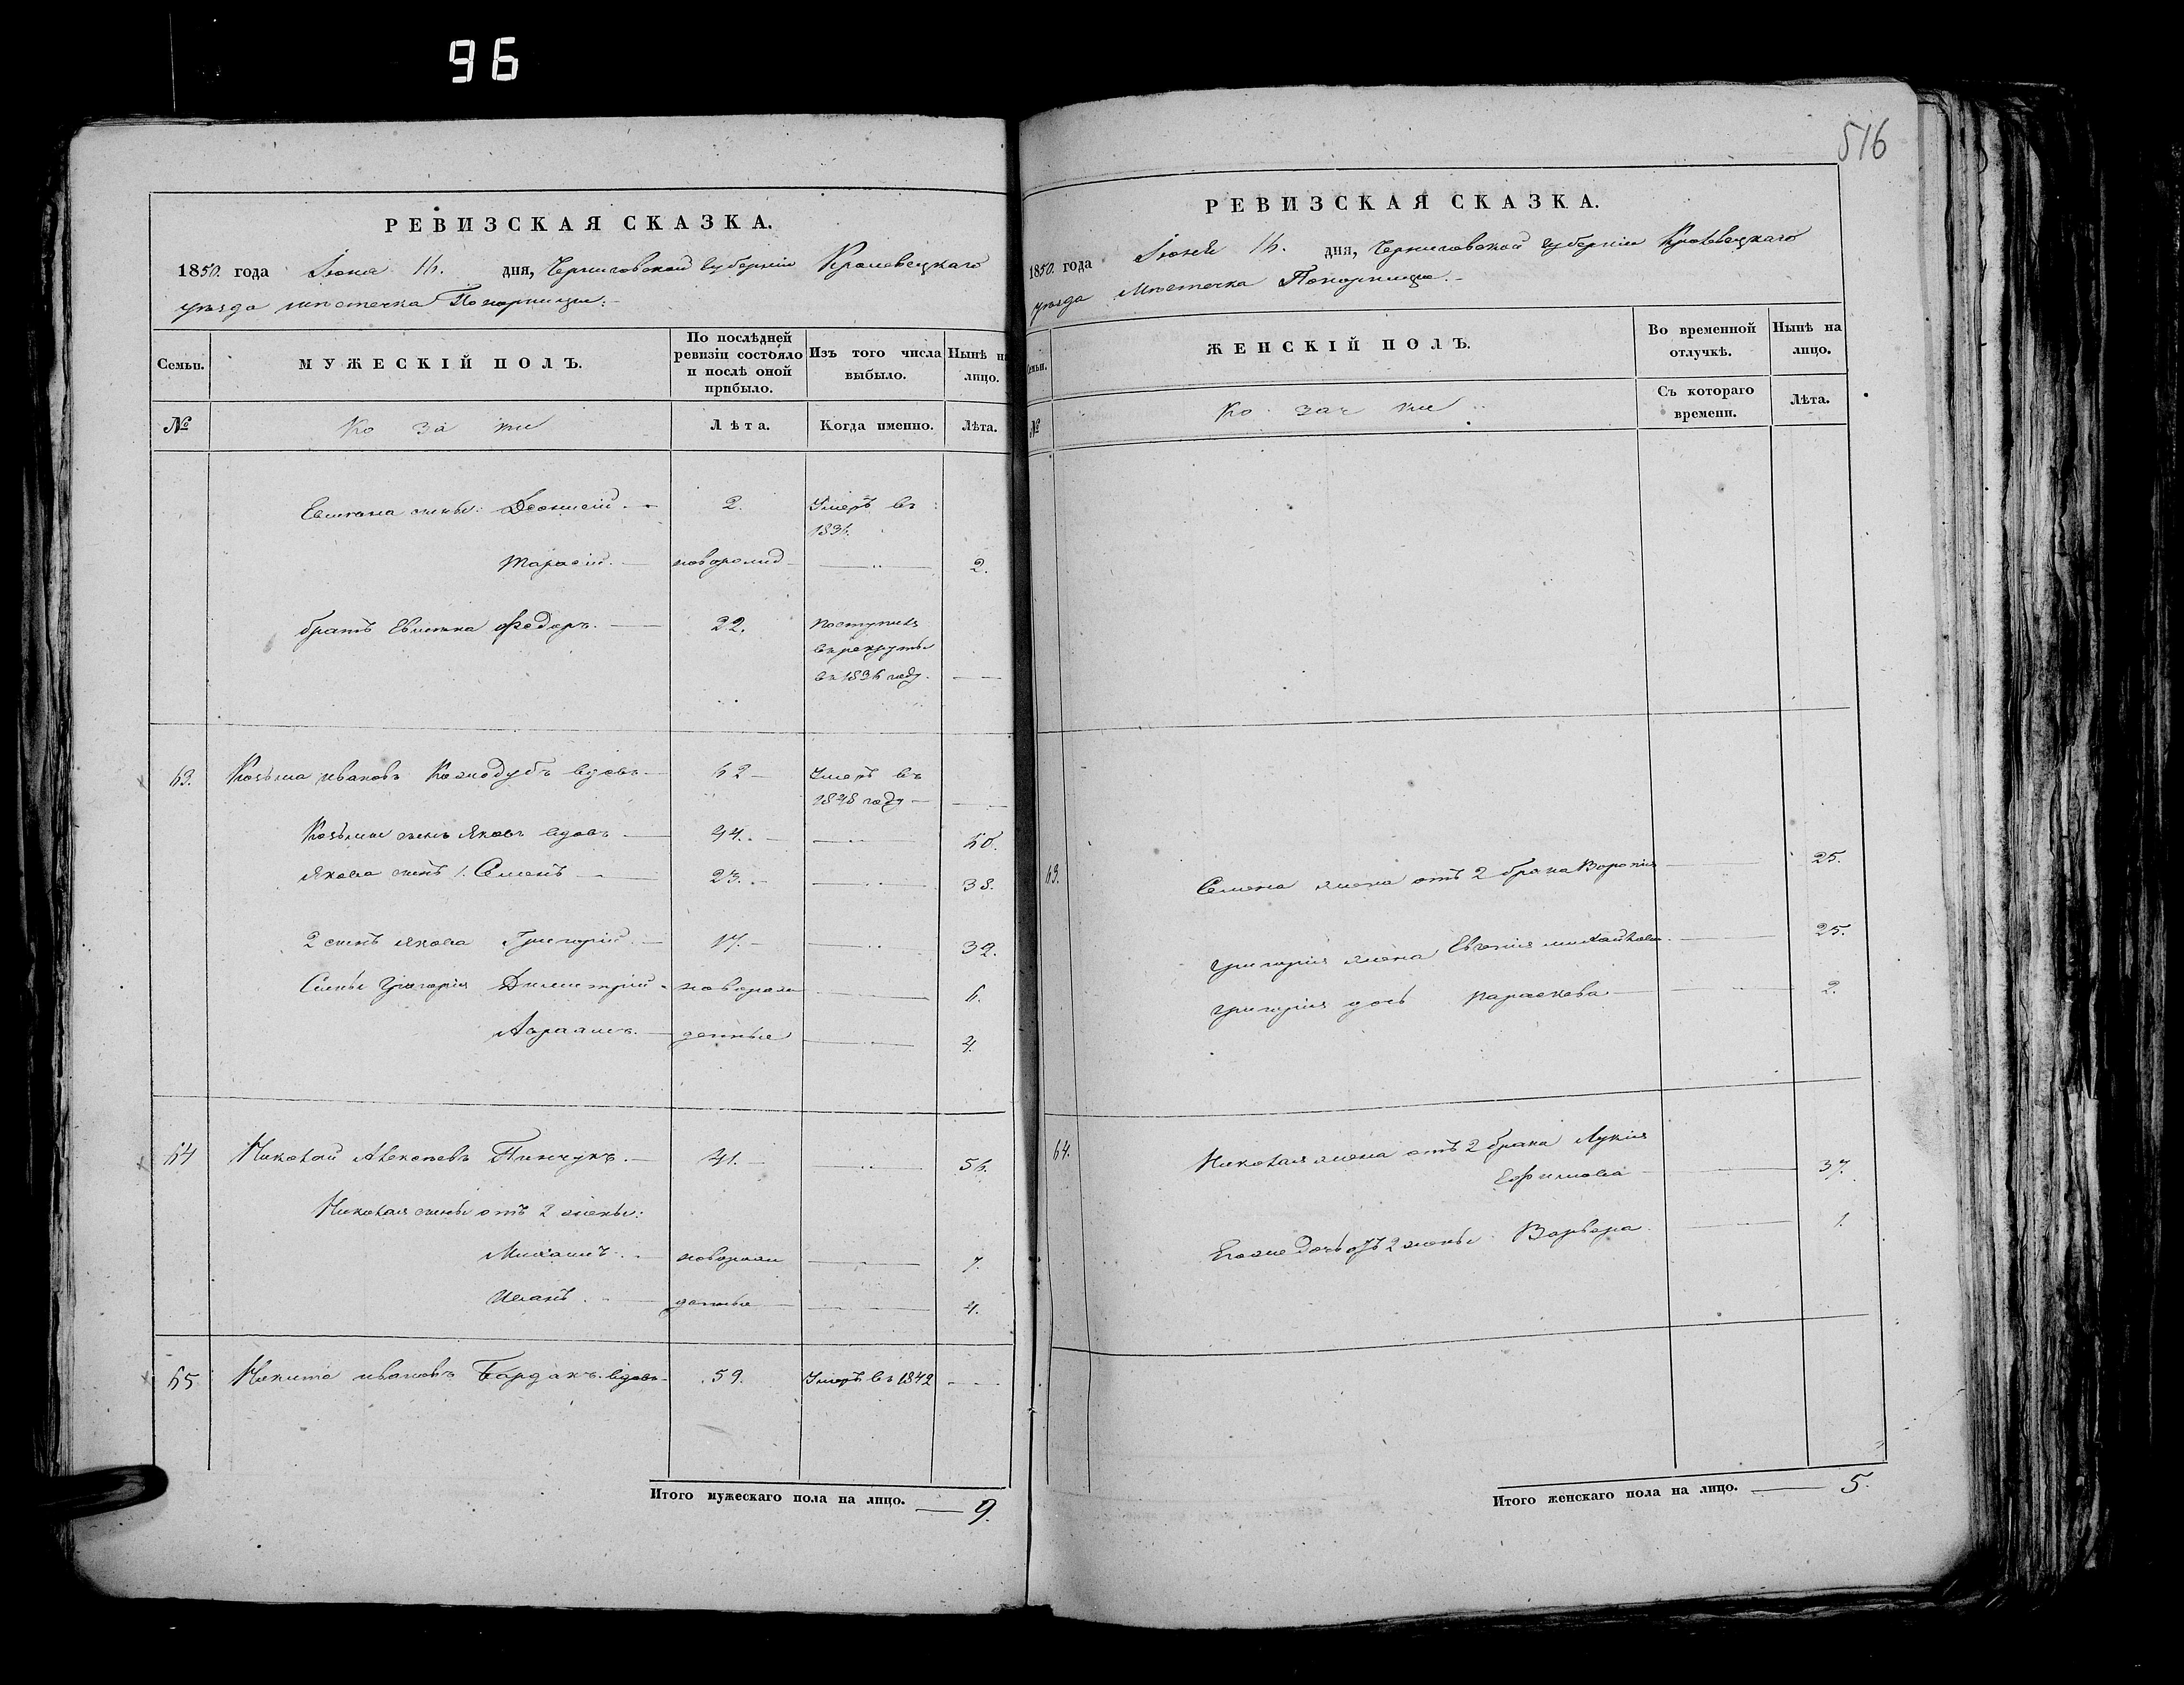 96
516
РЕВИЗСКАЯ СКАЗКА.
1850. года Іюня 16. дня, Черниговской губерніи Кролевецкаго
уѣзда мѣстечка Понорницы.
Семьи. МУЖЕСКІЙ ПОЛЪ. По послѣдней ревизіи состояло и послѣ оной прибыло. Изъ того числа выбыло. Нынѣ на лицо.
№ Козаки Лѣта. Когда именно. Лѣта.
сыны: Деонисій. 2. Умеръ въ
Тарасій. новорожд 2.
братъ Федоръ. 22. поступилъ
въ рекруты
въ 1836 году.
63. Козьма Ивановъ вдовъ 62 Умеръ въ
1848 году
Козьмы сынъ Яковъ вдовъ 44. 60.
Якова сынъ 1. Семенъ 23. 38.
2 сынъ Якова Григорій 17. 32.
Сыны Григорія Димитрій новорож 6.
Авраамъ. денные 4.
64 Николай Алексѣевъ Пинчукъ. 41. 56.
Николая сыны отъ 2 жены:
Михаилъ. новорож 7.
Иванъ. денные 4.
65 Никита Ивановъ Бардакъ. вдовъ 59. Умеръ въ 1842
Итого мужескаго пола на лицо. 9.
РЕВИЗСКАЯ СКАЗКА.
1850. года Іюня 16. дня, Черниговской губерніи Кролевецкаго
уѣзда Мѣстечка Понорницы.
Семьи. ЖЕНСКІЙ ПОЛЪ. Во временной отлучкѣ. Нынѣ на лицо.
№ Козачки Съ котораго времени. Лѣта.
63. Семена жена отъ 2 брака 25.
Григорія жена Евгенія Михайлова 25.
Григорія дочь Параскева 2.
64. Николая жена отъ 2 брака Лукія
Ефимова 37.
Егоже дочь отъ 2 жены Варвара 1.
Итого женскаго пола на лицо. 5.